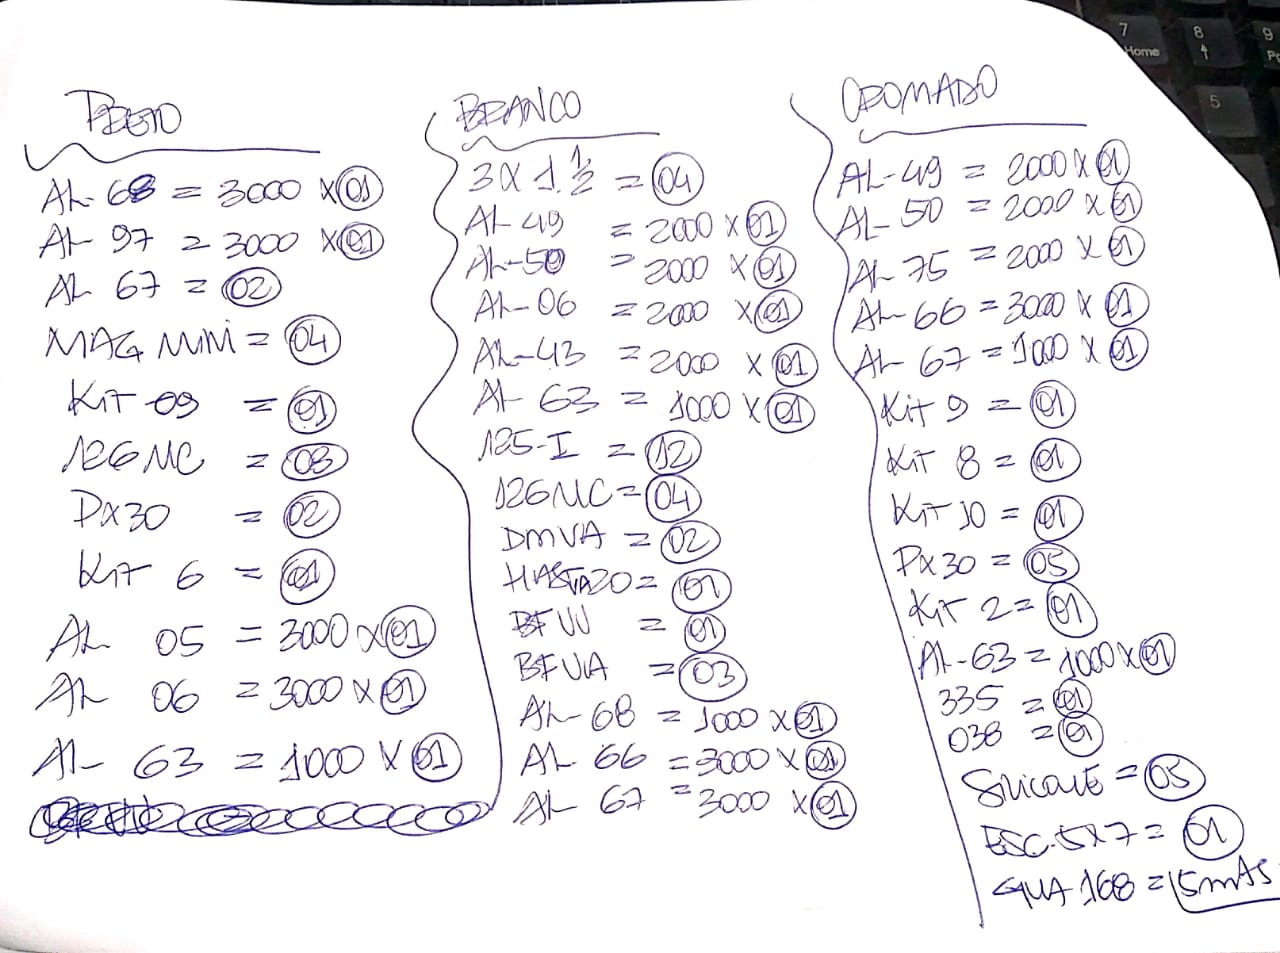 PRETO
AL-68 = 3000 X 01
AL 97 = 3000 X 01
AL 67 = 02
MAG MINI = 04
KIT 09 = 01
126 NC = 03
PX30 = 02
KIT 6 = 01
AL 05 = 3000 X 01
AL 06 = 3000 X 01
AL 63 = 1000 X 01
BRANCO
3X 1.1/2 = 04
AL 49 = 2000 X 01
AL-50 = 2000 X 01
AL-06 = 2000 X 01
AL-43 = 2000 X 01
AL 63 = 1000 X 01
125-I = 12
126 NC = 04
DMVA = 02
HASTA20 = 01
BFVV = 01
BFVA = 03
AL-68 = 1000 X 01
AL 66 = 3000 X 01
AL 67 = 3000 X 01
CROMADO
AL-49 = 2000 X 01
AL-50 = 2000 X 01
AL-75 = 2000 X 01
AL-66 = 3000 X 01
AL-67 = 1000 X 01
Kit 9 = 01
Kit 8 = 01
KiT 10 = 01
PX30 = 05
KiT 2 = 01
AL-63 = 1000 X 01
335 = 01
038 = 01
SILICONE = 05
ESC. 5X7 = 01
GUA 168 = 15 mts
7
Home
8
↑
9
5